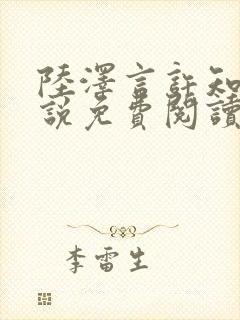 陸澤言許知
說免費閱讀
李雷生